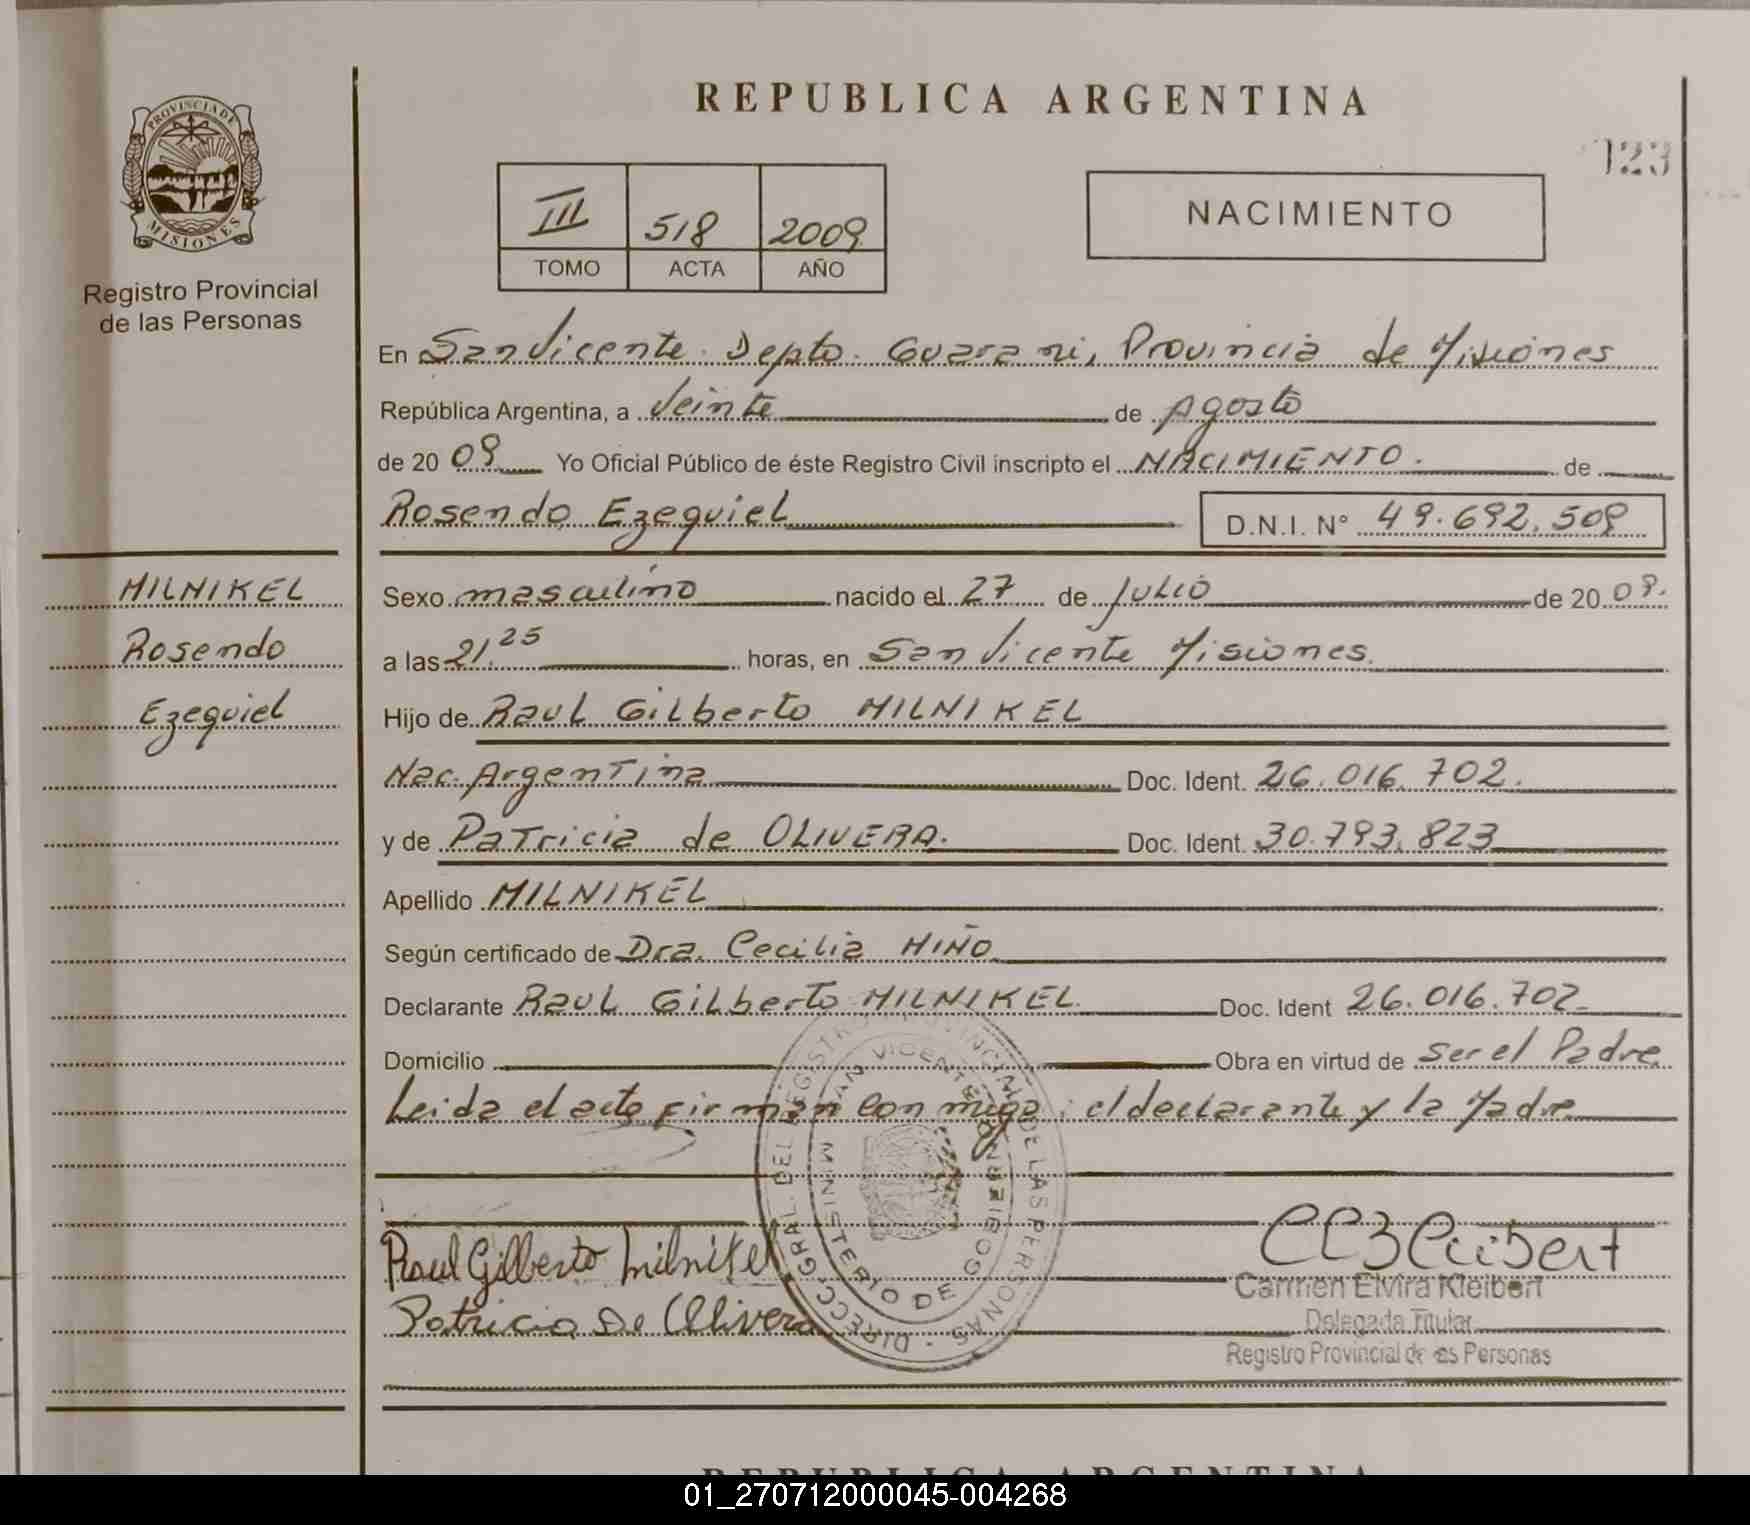 REPUBLICA ARGENTINA
123
PROVINCIA DE
MISIONES
Registro Provincial
de las Personas
III 518 2009
TOMO ACTA AÑO
NACIMIENTO
En San Vicente Depto. Guarani, Provincia de Misiones
República Argentina, a Veinte de Agosto
de 20 09 Yo Oficial Público de éste Registro Civil inscripto el NACIMIENTO. de
Rosendo Ezequiel D.N.I. Nº 49.692.509
MILNIKEL
Rosendo
Ezequiel
Sexo masculino nacido el 27 de Julio de 20 09.
a las 21.25 horas, en San Vicente Misiones.
Hijo de Raul Gilberto MILNIKEL
Nac. Argentina Doc. Ident. 26.016.702.
y de Patricia de OLIVERA. Doc. Ident. 30.793.823
Apellido MILNIKEL
Según certificado de Dra. Cecilia MIÑO
Declarante Raul Gilberto MILNIKEL. Doc. Ident 26.016.702.
Domicilio Obra en virtud de ser el Padre
Leida el acta firman con migo: el declarante y la Madre
DIRECC. GRAL. DEL REGISTRO PROVINCIAL DE LAS PERSONAS
SAN VICENTE
MINISTERIO DE GOBIERNO
Raul Gilberto Milnikel
Patricia De Olivera
Carmen Elvira Kleibert
Delegada Titular
Registro Provincial de las Personas
REPUBLICA ARGENTINA
01_270712000045-004268